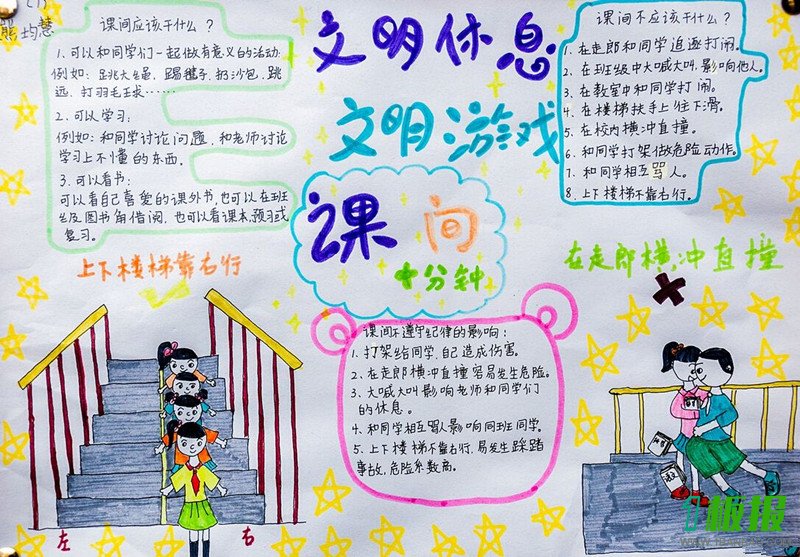 熊均慧
课间应该干什么？
1、可以和同学们一起做有意义的活动
例如：跳大绳、踢毽子、扔沙包、跳
远、打羽毛球……
2、可以学习：
例如：和同学讨论问题，和老师讨论
学习上不懂的东西。
3、可以看书：
可以看自己喜爱的课外书，也可以在班
级图书角借阅，也可以看课本、预习或
复习。
文明休息
文明游戏
课间
十分钟
课间不应该干什么？
1、在走郎和同学追逐打闹。
2、在班级中大喊大叫，影响他人。
3、在教室中和同学打闹。
4、在楼梯扶手上往下滑。
5、在校内横冲直撞。
6、和同学打架做危险动作。
7、和同学相互骂人。
8、上下楼梯不靠右行。
上下楼梯靠右行
在走郎横冲直撞
课间不遵守纪律的影响：
1、打架给同学、自己造成伤害。
2、在走郎横冲直撞容易发生危险。
3、大喊大叫影响老师和同学们
的休息。
4、和同学相互骂人影响同班同学。
5、上下楼梯不靠右行，易发生踩踏
事故，危险系数高。
左
右
板报